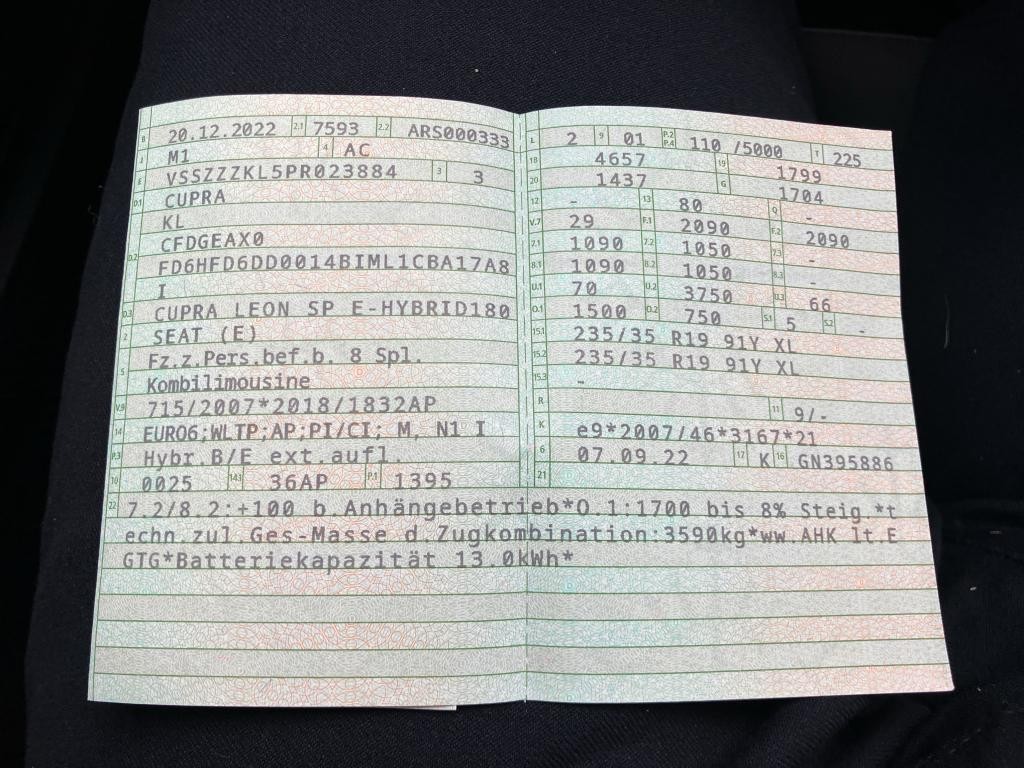 B 20.12.2022 2.1 7593 2.2 ARS000333
J M1 4 AC
E VSSZZZKL5PR023884 3 3
D.1 CUPRA
KL
D.2 CFDGEAX0
FD6HFD6DD0014BIML1CBA17A8
I
D.3 CUPRA LEON SP E-HYBRID180
2 SEAT (E)
5 Fz.z.Pers.bef.b. 8 Spl.
Kombilimousine
V.9 715/2007*2018/1832AP
14 EURO6;WLTP;AP;PI/CI; M, N1 I
P.3 Hybr.B/E ext.aufl.
10 0025 14.1 36AP P.1 1395
L 2 9 01 P.2 P.4 110 /5000 T 225
18 4657 19 1799
20 1437 G 1704
12 - 13 80 Q -
V.7 29 F.1 2090 F.2 2090
7.1 1090 7.2 1050 7.3 -
8.1 1090 8.2 1050 8.3 -
U.1 70 U.2 3750 U.3 66
O.1 1500 O.2 750 S.1 5 S.2 -
15.1 235/35 R19 91Y XL
15.2 235/35 R19 91Y XL
15.3 -
R 11 9/-
K e9*2007/46*3167*21
6 07.09.22 17 K 16 GN395886
21
22 7.2/8.2:+100 b.Anhängebetrieb*O.1:1700 bis 8% Steig.*t
echn.zul.Ges-Masse d.Zugkombination:3590kg*ww.AHK lt.E
GTG*Batteriekapazität 13.0kWh*